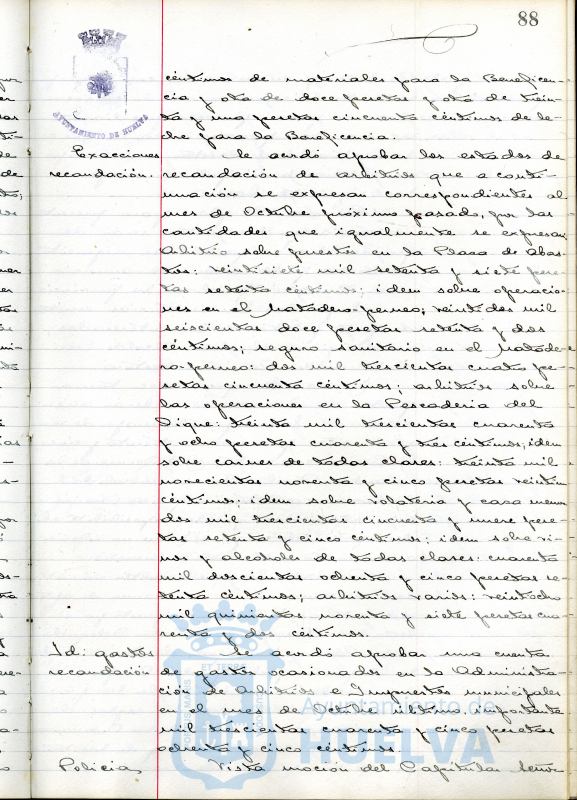 88
AYUNTAMIENTO DE HUELVA
céntimos de materiales para la Beneficen-
cia y otra de doce pesetas y otra de trein-
ta y una pesetas cincuenta céntimos de le-
che para la Beneficencia.
Exacciones
recaudación.
Se acordó aprobar los estados de
recaudación de arbitrios que a conti-
nuación se expresan correspondientes al
mes de Octubre próximo pasado, por las
cantidades que igualmente se expresan
Arbitrio sobre puestos en la Plaza de Abas-
tos: veintisiete mil setenta y siete pese-
tas setenta céntimos; idem sobre operacio-
nes en el Matadero-perneo; veintidos mil
seiscientas doce pesetas setenta y dos
céntimos; seguro sanitario en el Matade-
ro-perneo: dos mil trescientas cuatro pe-
setas cincuenta céntimos; arbitrios sobre
las operaciones en la Pescadería del
Dique: treinta mil trescientas cuarenta
y ocho pesetas cuarenta y tres céntimos; idem
sobre carnes de todas clases: treinta mil
novecientas noventa y cinco pesetas veintiun
céntimos; idem sobre volatería y caza menor
dos mil trescientas cincuenta y nueve pese-
tas setenta y cinco céntimos; idem sobre vi-
nos y alcoholes de todas clases: cuarenta
mil doscientas ochenta y cinco pesetas se-
tenta céntimos; arbitrios varios: veintiocho
mil quinientas noventa y siete pesetas cua-
renta y dos céntimos.
Id: gastos
recaudación
Se acordó aprobar una cuenta
de gastos ocasionados en la Administra-
ción de Arbitrios e Impuestos municipales
en el mes de Octubre último importante
mil trescientas cuarenta y cinco pesetas
ochenta y cinco céntimos.
Policia
Vista moción del Capitular Señor
Ayuntamiento de
HUELVA